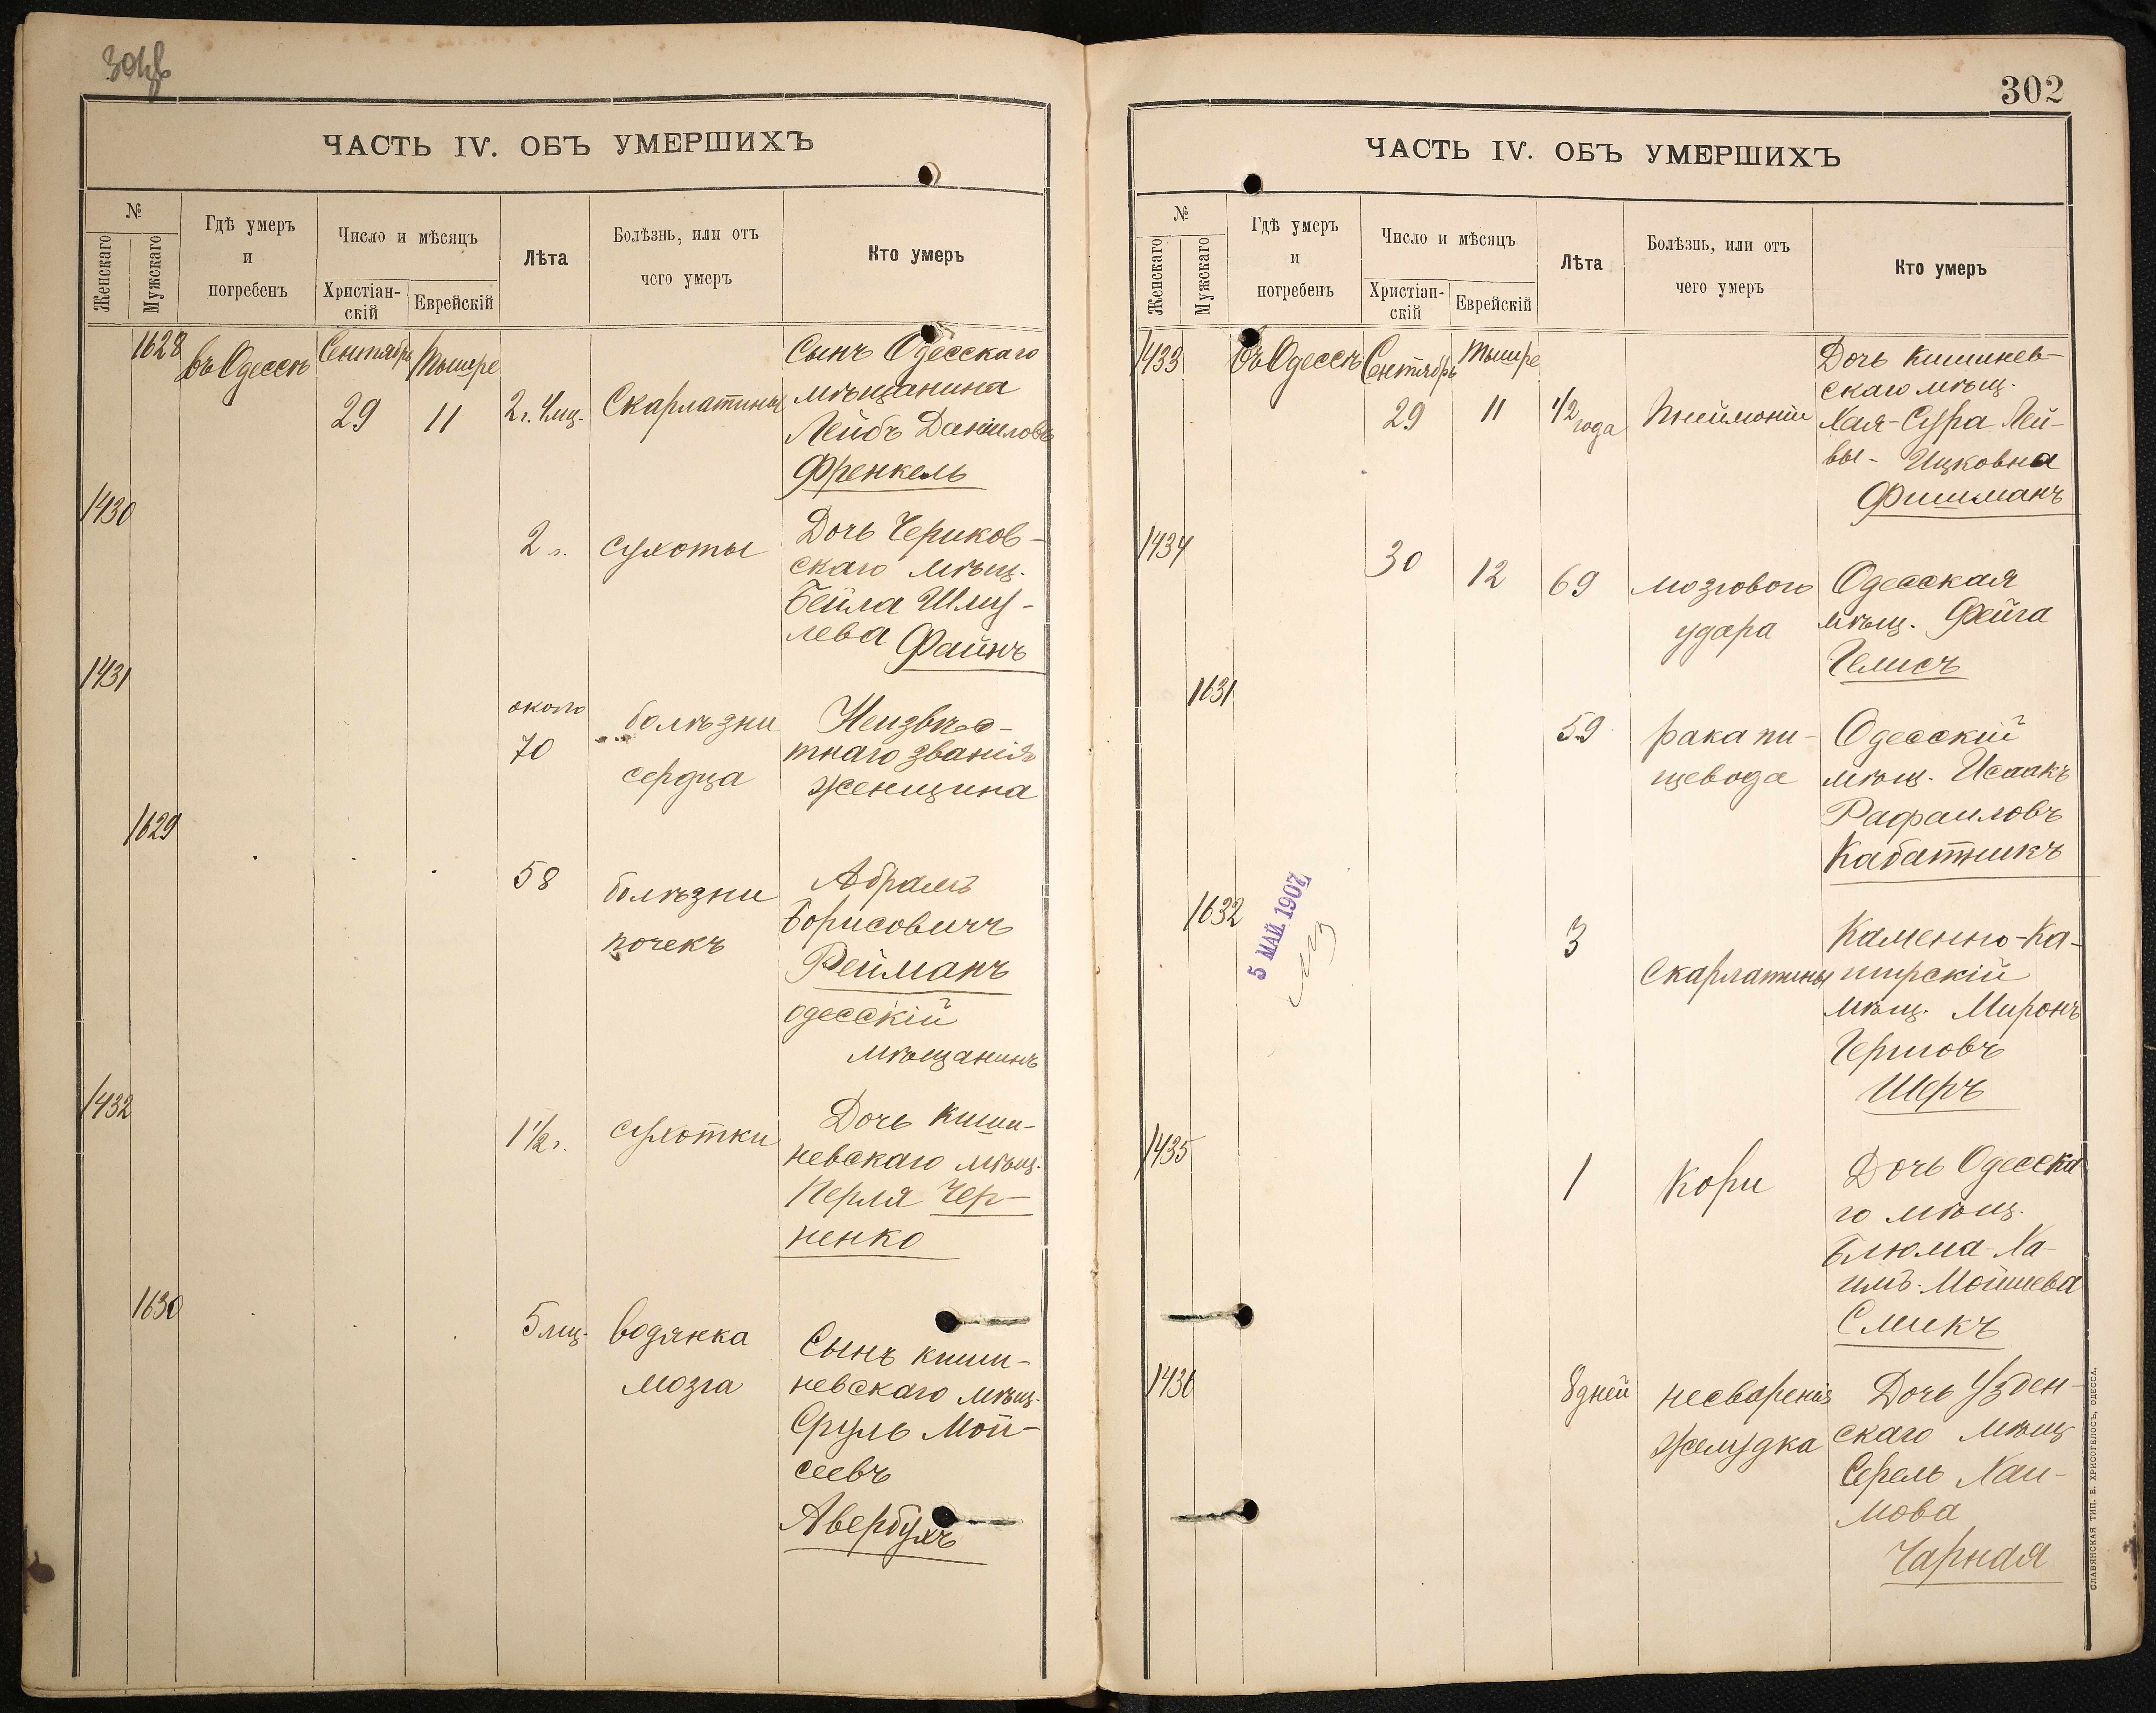 301об
ЧАСТЬ IV. ОБЪ УМЕРШИХЪ
№
Женскаго
Мужскаго
Гдѣ умеръ
и
погребенъ
Число и мѣсяцъ
Христіан-
скій
Еврейскій
Лѣта
Болѣзнь, или отъ
чего умеръ
Кто умеръ
1628
въ Одессѣ
Сентябрь
Тышре
29
11
2г. 4мц.
Скарлатины
Сынъ Одесскаго
мѣщанина
Лейбъ Даниловъ
Френкель
1430
2 г.
сухоты
Дочь Чериков-
скаго мѣщ.
Бейла Шму-
лева Файнъ
1431
около
70
болѣзни
сердца
Неизвѣс-
тнаго званія
женщина
1629
58
болѣзни
почекъ
Абрамъ
Борисовичъ
Рейманъ
одесскій
мѣщанинъ
1432
1 1/2 г.
сухотки
Дочь Киши-
невскаго мѣщ.
Перля Чер-
ненко
1630
5 мц.
водянка
мозга
Сынъ киши-
невскаго мѣщ.
Сруль Мой-
сеевъ
Авербухъ
302
ЧАСТЬ IV. ОБЪ УМЕРШИХЪ
№
Женскаго
Мужскаго
Гдѣ умеръ
и
погребенъ
Число и мѣсяцъ
Христіан-
скій
Еврейскій
Лѣта
Болѣзнь, или отъ
чего умеръ
Кто умеръ
1433
въ Одессѣ
Сентябрь
Тышре
29
11
1/2 года
Пнеймоніи
Дочь кишинев-
скаго мѣщ.
Хая-Сура Лей-
вы-Ицковна
Фишманъ
1434
30
12
69
мозгового
удара
Одесская
мѣщ. Фейга
Гелисъ
1631
59
рака пи-
щевода
Одесскій
мѣщ. Исаакъ
Рафаиловъ
Кабатникъ
1632
5 МАЙ 1907
3
Скарлатины
Каменно-Ка-
ширскій
мѣщ. Миронъ
Гершовъ
Шеръ
1435
1
Кори
Дочь Одесска-
го мѣщ.
Блюма-Ха-
имъ-Мойшева
Смикъ
1436
8 дней
несваренія
желудка
Дочь Узден-
скаго мѣщ
Серель Хаи-
мова
Чарная
СЛАВЯНСКАЯ ТИП. Е. ХРИСОГЕЛОСЪ, ОДЕССА.